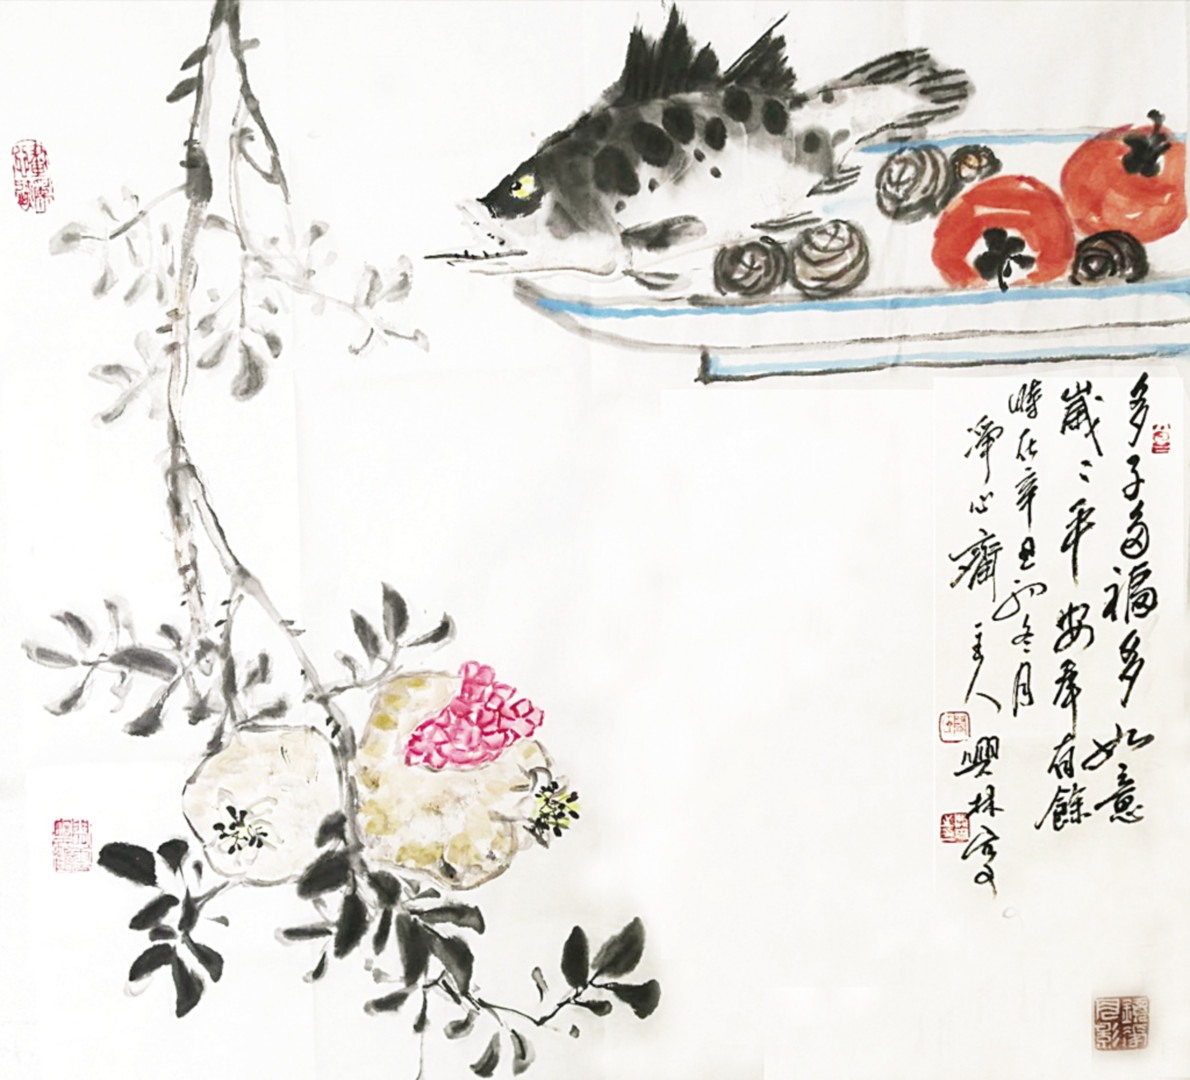 多子多福多如意
歲〻平安年有餘
時在辛丑初冬月
淨心齋主人興林寫